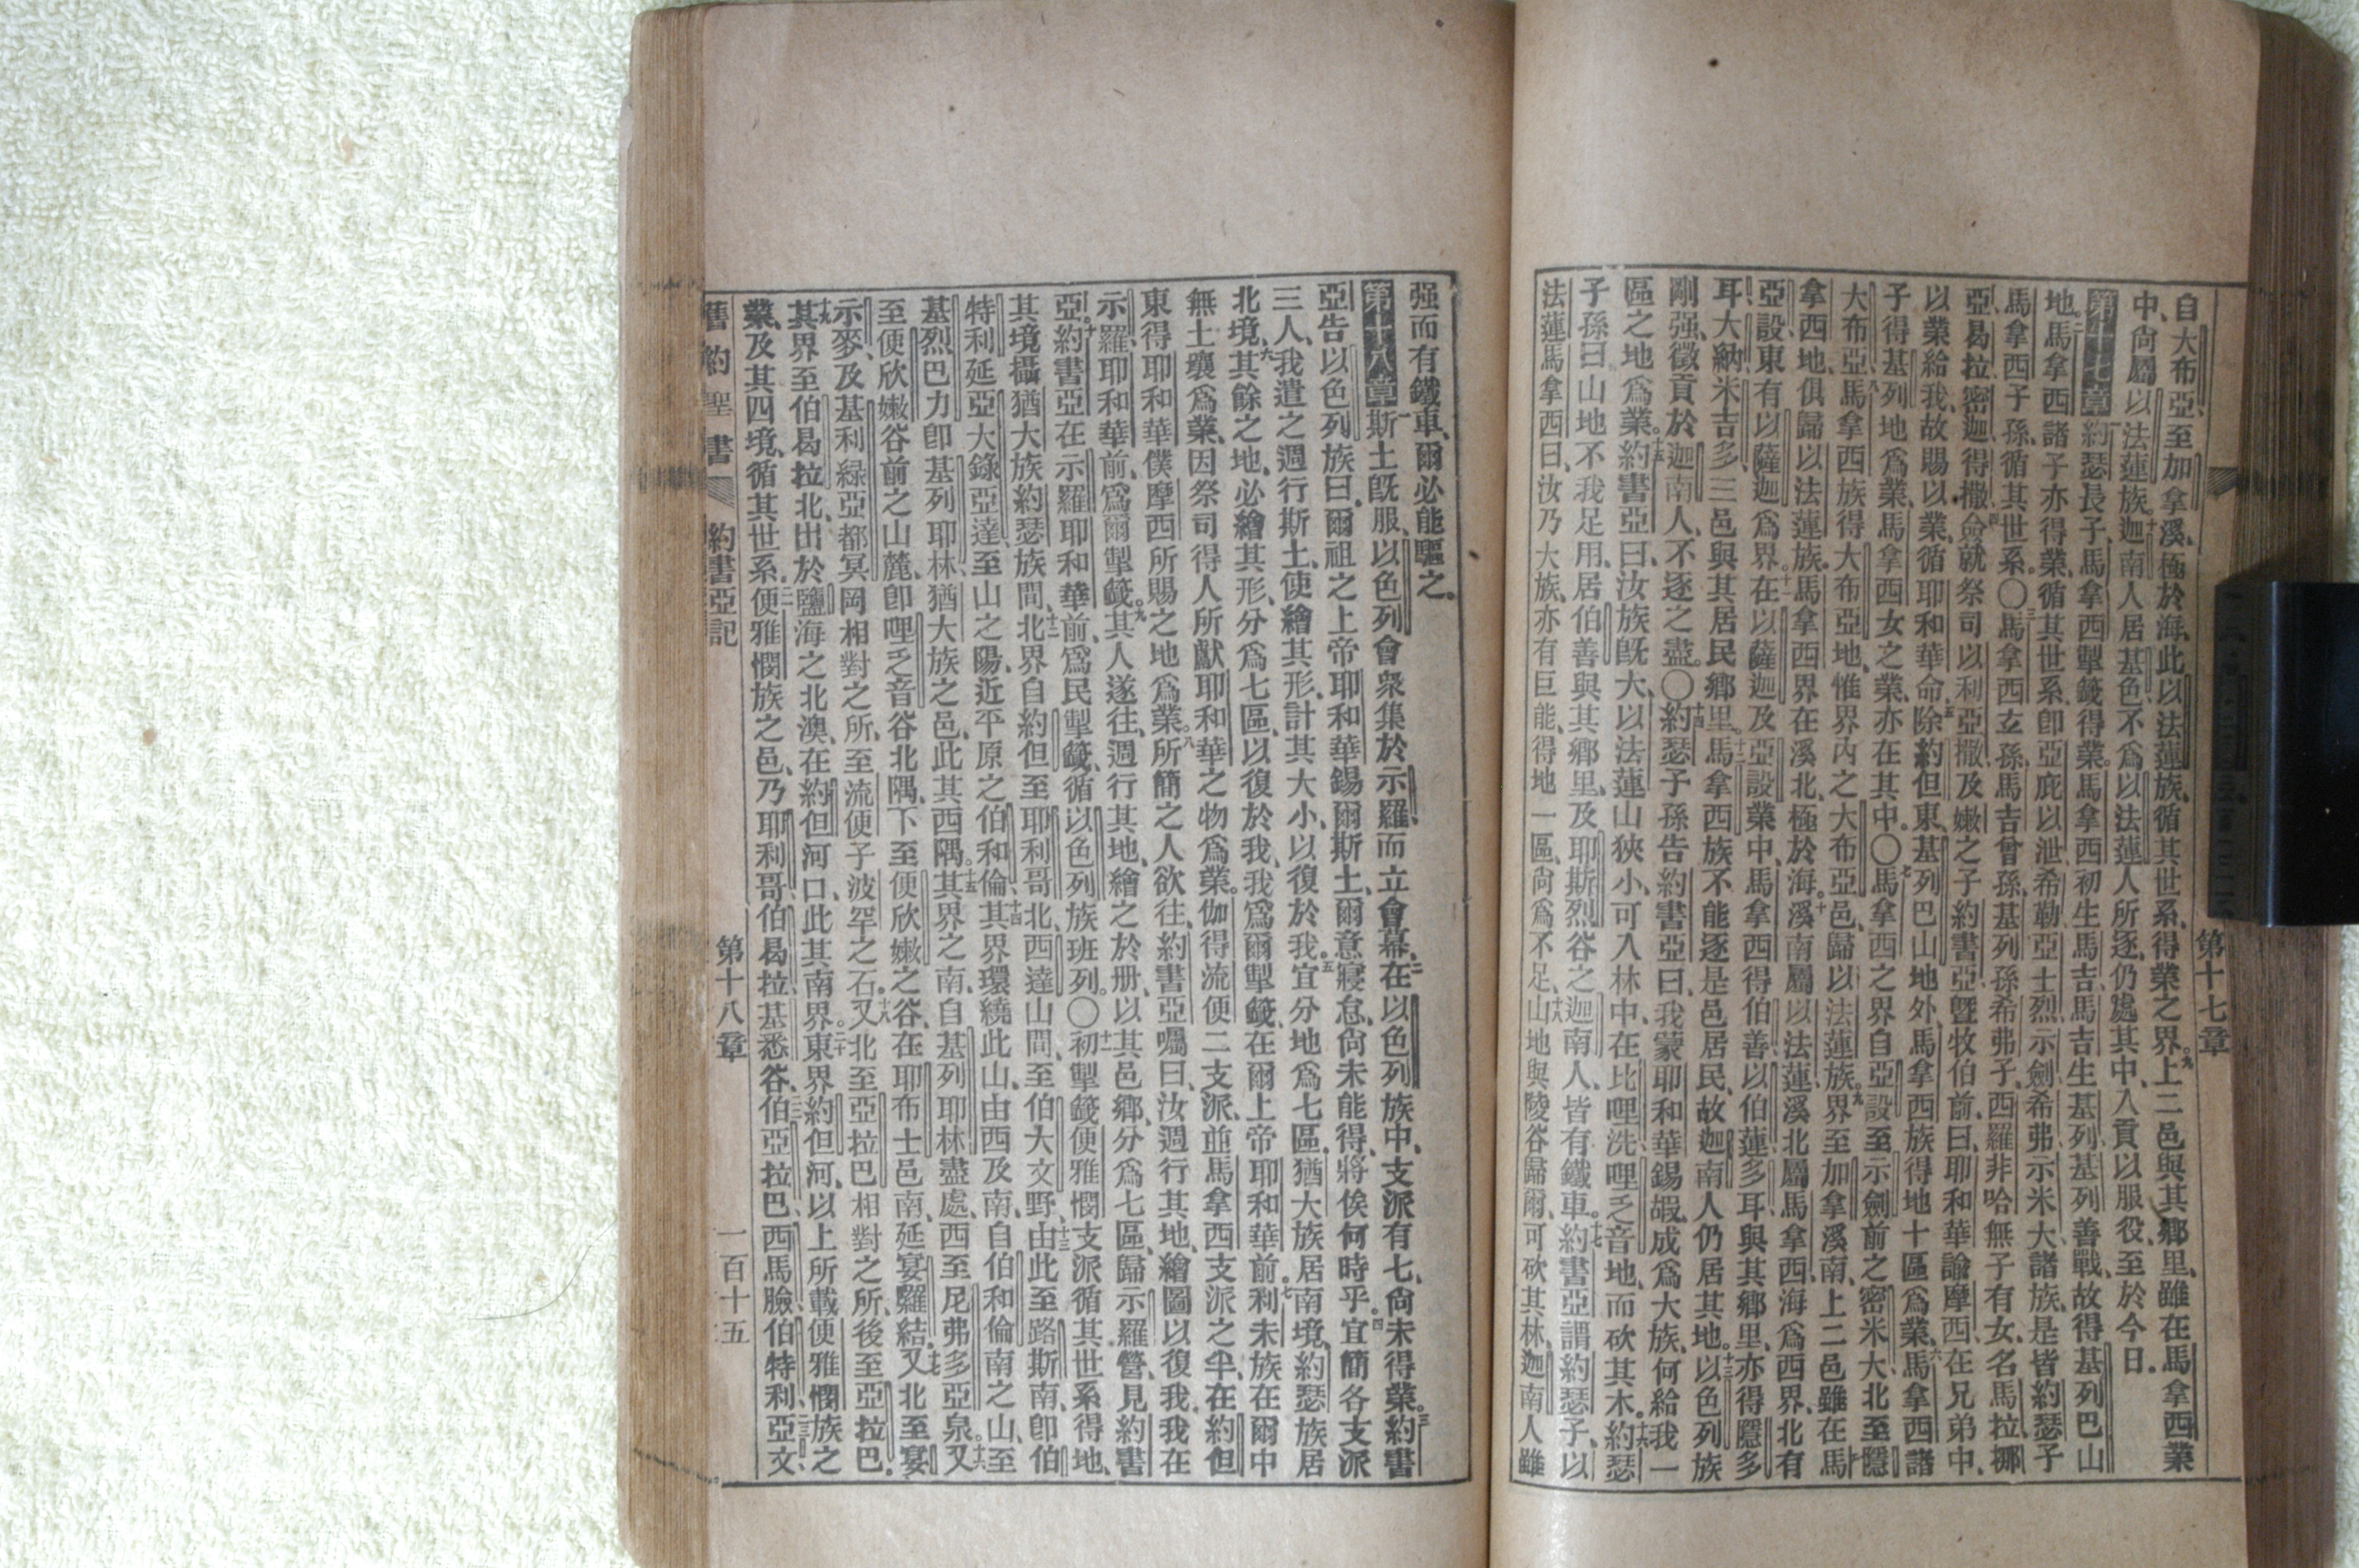 自大布亞、至加拿溪、極於海、此以法蓮族、循其世系、得業之界。九上二邑與其鄉里、雖在馬拿西業
中、尙屬以法蓮族、十迦南人居基色、不爲以法蓮人所逐、仍處其中、入貢以服役、至於今日。
第十七章 一約瑟長子、馬拿西掣籤得業。馬拿西初生馬吉、馬吉生基列、基列善戰、故得基列巴山
地。二馬拿西諸子亦得業、循其世系、卽亞庇以泄希勒亞士烈示劍希弗示米大諸族、是皆約瑟子
馬拿西子孫、循其世系。〇三馬拿西玄孫、馬吉曾孫、基列孫、希弗子、西羅非哈無子有女、名馬拉挪
亞曷拉密迦得撒、四僉就祭司以利亞撒、及嫩之子約書亞、曁牧伯前、曰、耶和華諭摩西、在兄弟中、
以業給我、故賜以業、循耶和華命、五除約但東、基列巴山地外、馬拿西族得地十區爲業、六馬拿西諸
子得基列地爲業、馬拿西女之業、亦在其中。〇七馬拿西之界、自亞設至示劍前之密米大、北至隱
大布亞、八馬拿西族得大布亞地、惟界內之大布亞邑、歸以法蓮族。九界至加拿溪南、上二邑雖在馬
拿西地、俱歸以法蓮族。馬拿西界在溪北、極於海、十溪南屬以法蓮、溪北屬馬拿西、海爲西界、北有
亞設、東有以薩迦爲界。十一在以薩迦及亞設業中、馬拿西得伯善、以伯蓮、多耳、與其鄉里、亦得隱多
耳、大納、米吉多、三邑與其居民鄉里。十二馬拿西族不能逐是邑居民、故迦南人仍居其地。十三以色列族
剛强、徵貢於迦南人、不逐之盡。〇十四約瑟子孫告約書亞曰、我蒙耶和華錫嘏、成爲大族、何給我一
區之地爲業。十五約書亞曰、汝族旣大、以法蓮山狹小、可入林中、在比哩洗哩乏音地、而砍其木。十六約瑟
子孫曰、山地不我足用、居伯善與其鄉里、及耶斯烈谷之迦南人、皆有鐵車。十七約書亞謂約瑟子、以
法蓮馬拿西曰、汝乃大族、亦有巨能、得地一區、尙爲不足、十八山地與陵谷歸爾、可砍其林、迦南人雖
第十七章
强而有鐵車、爾必能驅之。
第十八章 一斯土旣服、以色列會衆集於示羅、而立會幕、二在以色列族中、支派有七、尙未得業。三約書
亞告以色列族曰、爾祖之上帝耶和華錫爾斯土、爾意寢怠、尙未能得、將俟何時乎、四宜簡各支派
三人、我遣之週行斯土、使繪其形、計其大小、以復於我。五宜分地爲七區、猶大族居南境、約瑟族居
北境、六其餘之地、必繪其形、分爲七區、以復於我、我爲爾掣籤、在爾上帝耶和華前、七利未族在爾中
無土壤爲業、因祭司得人所獻耶和華之物爲業。伽得流便二支派、並馬拿西支派之半、在約但
東得耶和華僕摩西所賜之地爲業。八所簡之人欲往、約書亞囑曰、汝週行其地、繪圖以復我、我在
示羅耶和華前、爲爾掣籤。九其人遂往、週行其地、繪之於册、以其邑鄉、分爲七區、歸示羅營、見約書
亞。十約書亞在示羅耶和華前、爲民掣籤、循以色列族班列。〇十一初掣籤、便雅憫支派、循其世系得地、
其境攝猶大族約瑟族間、十二北界自約但至耶利哥北、西達山間、至伯大文野、十三由此至路斯南、卽伯
特利、延亞大錄亞達、至山之陽、近平原之伯和倫、十四其界環繞此山、由西及南、自伯和倫南之山、至
基烈巴力、卽基列耶林、猶大族之邑、此其西隅。十五其界之南、自基列耶林盡處、西至尼弗多亞泉。十六又
至便欣嫩谷前之山麓、卽哩乏音谷北隅、下至便欣嫩之谷、在耶布士邑南、延宴羅結、十七又北至宴
示麥、及基利綠、亞都冥岡相對之所、至流便子波罕之石、十八又北至亞拉巴相對之所、後至亞拉巴。
十九其界至伯曷拉北、出於鹽海之北澳、在約但河口、此其南界。二十東界約但河、以上所載、便雅憫族之
業、及其四境、循其世系。二一便雅憫族之邑、乃耶利哥、伯曷拉、基悉谷、二二伯亞拉巴、西馬臉、伯特利、二三亞文、
舊約聖書 約書亞記 第十八章 一百十五